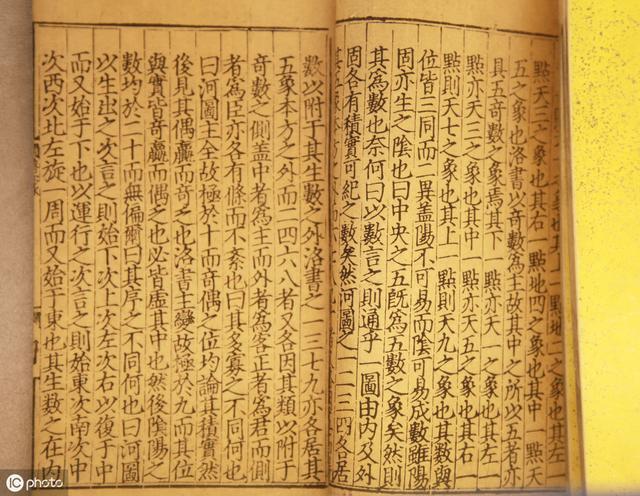 之象也其上一點地二之象也其左
點天三之象也其右一點地四之象也其中一點天
五之象也洛書以奇數爲主故其中之所以五者亦
具五奇數之象焉其下一點亦天一之象也其左一
點亦天三之象也其中一點亦天五之象也其右一
點則天七之象也其上一點則天九之象也其數與
位皆三同而二異蓋陽不可易而陰可易成數雖陽
固亦生之陰也曰中央之五旣爲五數之象矣然則
其爲數也奈何曰以數言之則通乎一圖由內及外
固各有積實可紀之數矣然河圖之一二三四各居
其五象本方之外而六七八九
數以附于其生數之外洛書之一三七九亦各居其
五象本方之外而二四六八者又各因其類以附于
奇數之側蓋中者爲主而外者爲客正者爲君而側
者爲臣亦各有條而不紊也曰其多寡之不同何也
曰河圖主全故極於十而奇偶之位均論其積實然
後見其偶贏而奇乏也洛書主變故極於九而其位
與實皆奇贏而偶乏也必皆虛其中也然後陰陽之
數均於二十而無偏爾曰其序之不同何也曰河圖
以生出之次言之則始下次上次左次右以復于中
而又始于下也以運行之次言之則始東次南次中
次西次北左旋一周而又始于東也其生數之在內
IC photo